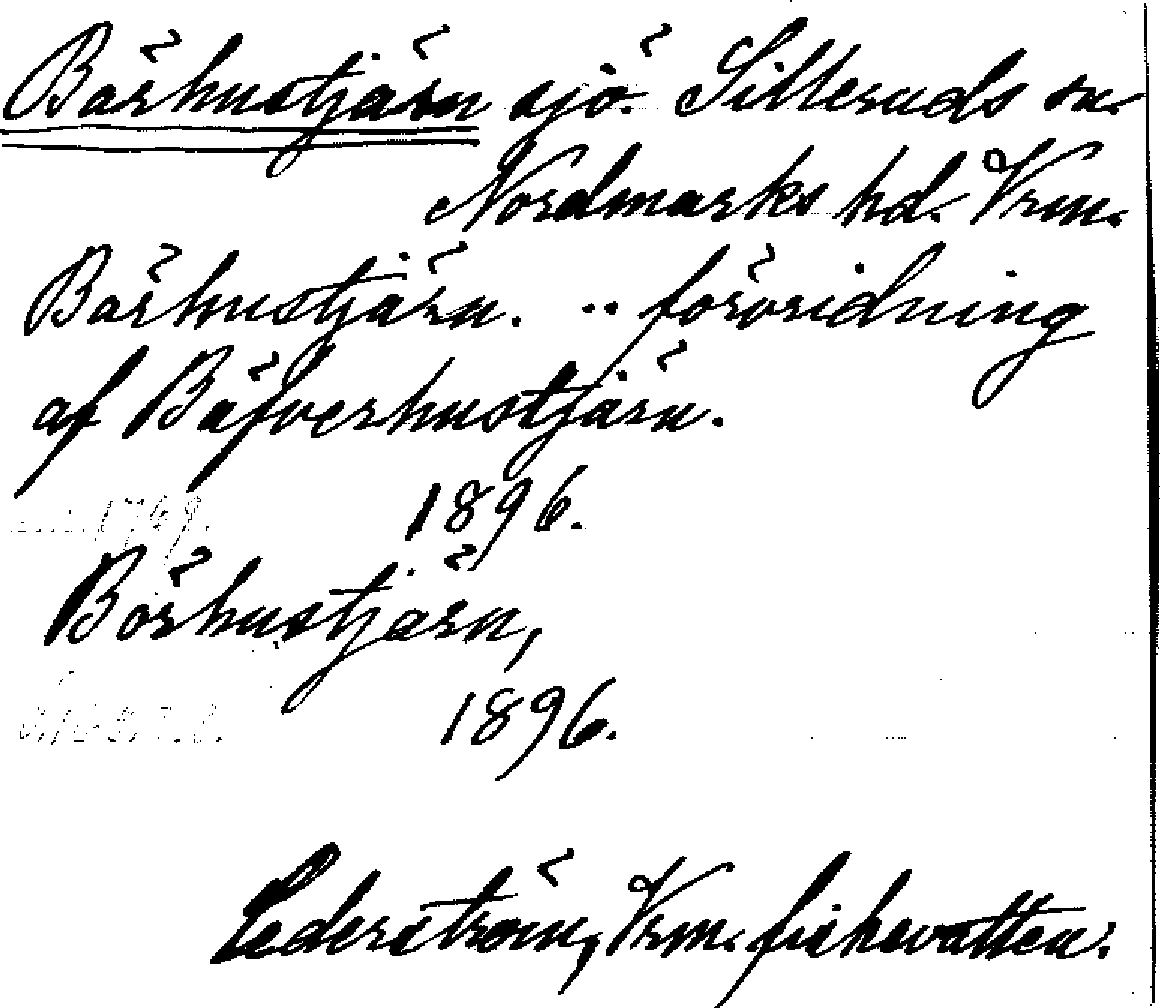 Bärhustjärn sjö. Silleruds sn.
Nordmarks hd. Vrm.
Bärhustjärn. .. förvridning
af Bäfverhustjärn.
1896.
Börhustjärn,
1896.
Cederström, Vrm. fiskevatten.